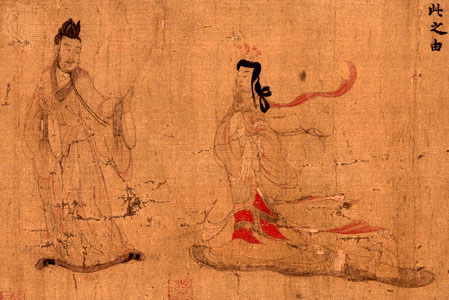 此之由